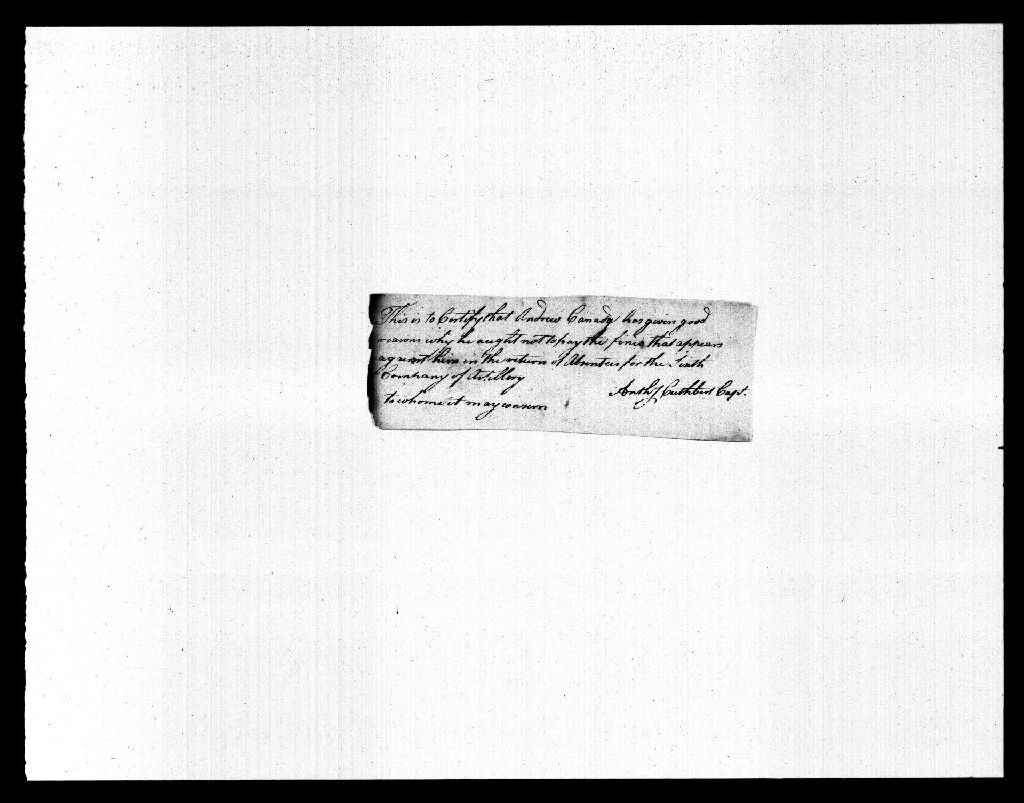 This is to Certify that Andrew Canady has given good
reasons why he aught not to pay the fines that appears
against him in the return of Absentees for the Sixth
Company of Artillery
Anthy Cuthbert Capt.
to whome it may concern